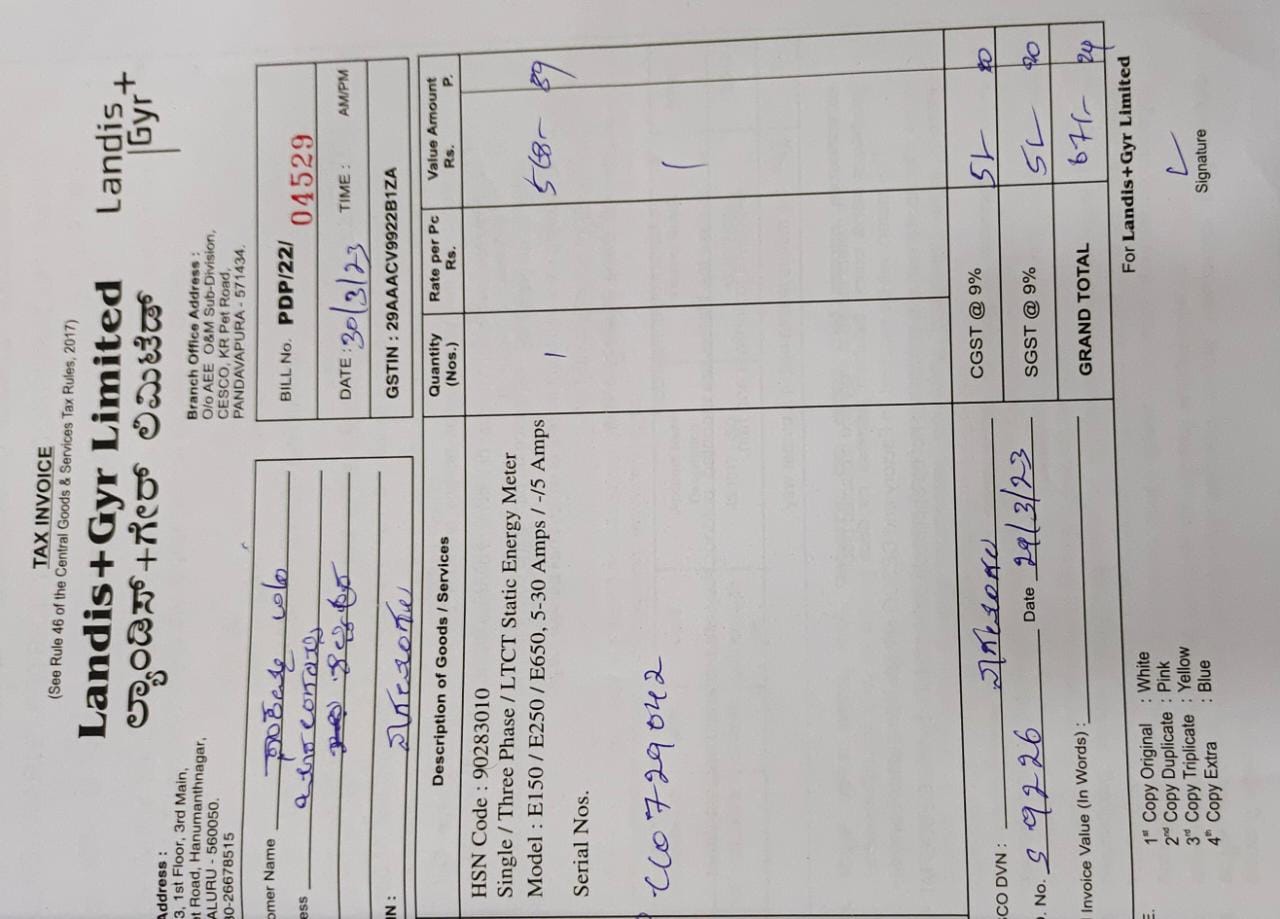 TAX INVOICE
(See Rule 46 of the Central Goods & Services Tax Rules, 2017)
Landis+Gyr Limited
ಲ್ಯಾಂಡಿಸ್+ಗೇರ್ ಲಿಮಿಟೆಡ್
Landis
Gyr+
Address :
3, 1st Floor, 3rd Main,
t Road, Hanumanthnagar,
ALURU - 560050.
30-26678515
Branch Office Address :
O/o AEE O&M Sub-Division,
CESCO, KR Pet Road,
PANDAVAPURA - 571434.
omer Name
ess
N :
BILL No. PDP/22/ 04529
DATE : 30/3/23 TIME : AM/PM
GSTIN : 29AAACV9922B1ZA
Description of Goods / Services
Quantity (Nos.)
Rate per Pc Rs.
Value Amount Rs. P.
HSN Code : 90283010
Single / Three Phase / LTCT Static Energy Meter
Model : E150 / E250 / E650, 5-30 Amps / -/5 Amps
1
568- 89
Serial Nos.
CC0729042
CO DVN :
No. S 9226 Date 29/3/23
Invoice Value (In Words) :
CGST @ 9% 51- 20
SGST @ 9% 51- 20
GRAND TOTAL 671- 24
For Landis+Gyr Limited
Signature
E.
1st Copy Original : White
2nd Copy Duplicate : Pink
3rd Copy Triplicate : Yellow
4th Copy Extra : Blue